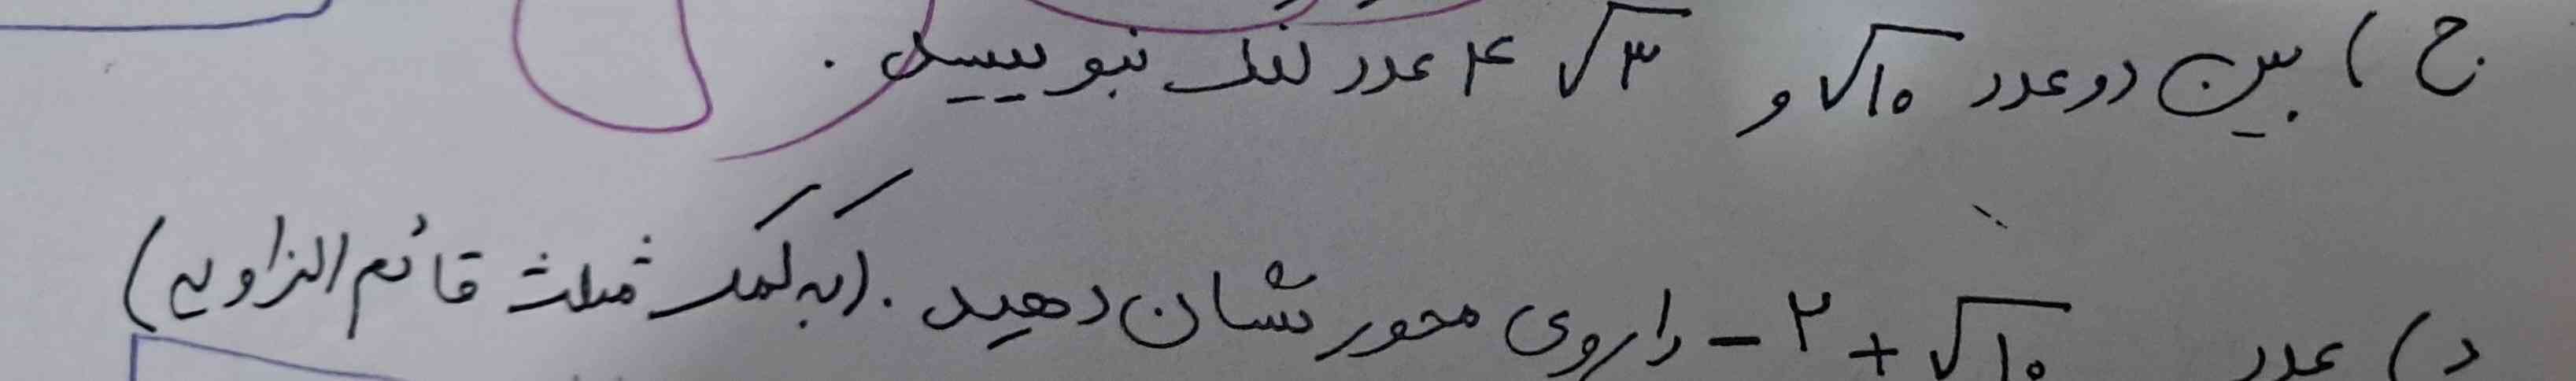 ج) بین دو عدد √۱۰ و √۳ ۴ عدد گنگ بنویسید.
د) عدد -۲+√۱۰ را روی محور نشان دهید. (به کمک مثلث قائم الزاویه)